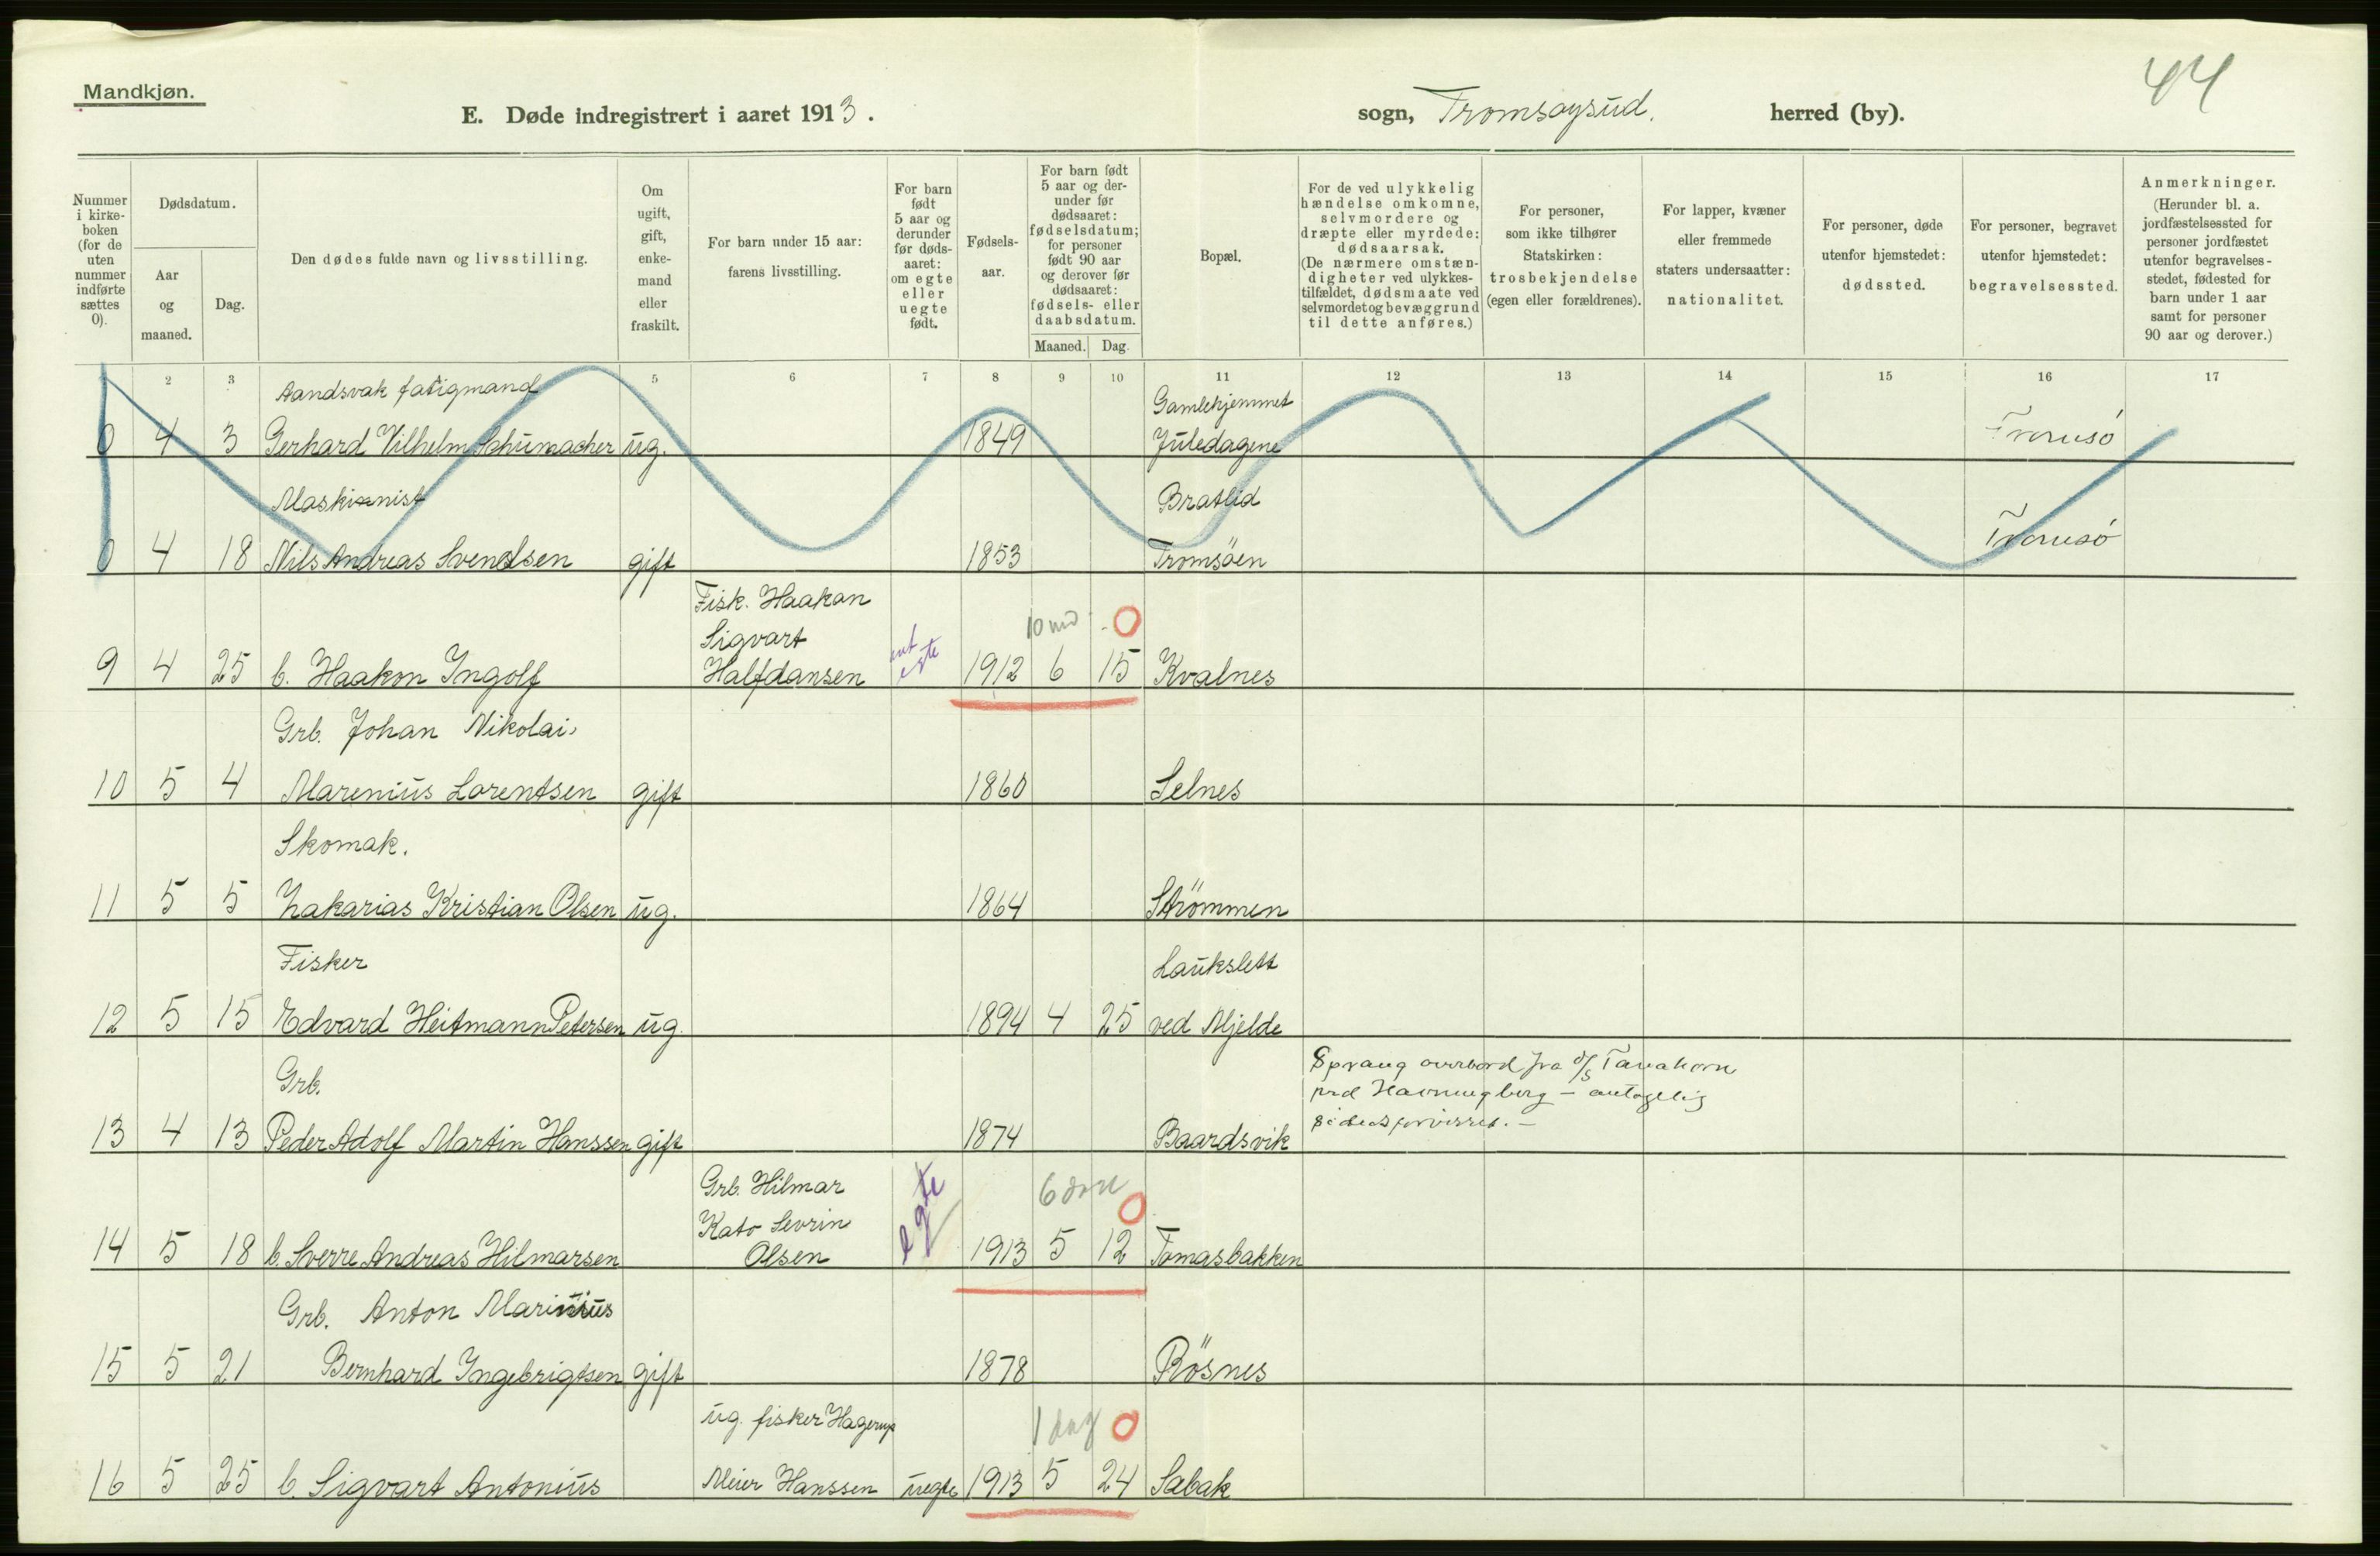 Mandkjøn.
44
E. Døde indregistrert i aaret 1913.
sogn, Tromsøysund. herred (by).
Nummer i kirke-boken (for de uten nummer indførte sættes 0).
Dødsdatum.
Aar og maaned.
Dag.
Den dødes fulde navn og livsstilling.
Om ugift, gift, enke-mand eller fraskilt.
For barn under 15 aar: farens livsstilling.
For barn født 5 aar og derunder før døds-aaret: om egte eller uegte født.
Fødsels-aar.
For barn født 5 aar og der-under før dødsaaret: fødselsdatum; for personer født 90 aar og derover før dødsaaret: fødsels- eller daabsdatum.
Maaned. Dag.
Bopæl.
For de ved ulykkelig hændelse omkomne, selvmordere og dræpte eller myrdede: dødsaarsak. (De nærmere omstæn-digheter ved ulykkes-tilfældet, dødsmaate ved selvmordet og bevæggrund til dette anføres.)
For personer, som ikke tilhører Statskirken: trosbekjendelse (egen eller forældrenes).
For lapper, kvæner eller fremmede staters undersaatter: nationalitet.
For personer, døde utenfor hjemstedet: dødssted.
For personer, begravet utenfor hjemstedet: begravelsessted.
Anmerkninger. (Herunder bl. a. jordfæstelsessted for personer jordfæstet utenfor begravelses-stedet, fødested for barn under 1 aar samt for personer 90 aar og derover.)
2 3 5 6 7 8 9 10 11 12 13 14 15 16 17
Aandsvak fatigmand Gamlehjemmet
0 4 3 Gerhard Vilhelm Schumacher ug. 1849 Juledagene Tromsö
Maskinist Bratlid
0 4 18 Nils Andreas Svendsen gift 1853 Tromsöen Tromsö
Fisk. Haakon
Sigvart 10 md. 0
9 4 25 b. Haakon Ingolf Halfdansen egte 1912 6 15 Kvalnes
Grb. Johan Nikolai
10 5 4 Marenius Lorentsen gift 1860 Selnes
Skomak.
11 5 5 Zakarias Kristian Olsen ug. 1864 Strömmen
Fisker Laukslett
12 5 15 Edvard Heitmann Petersen ug. 1894 4 25 ved Mjelde
Grb. Sprang overbord fra d/s Tanahorn
ved Havningberg – antagelig
13 4 13 Peder Adolf Martin Hanssen gift 1874 Baardsvik
Grb. Hilmar 6 dage
Kato Sevrin 0
14 5 18 b. Sverre Andreas Hilmarsen Olsen egte 1913 5 12 Tomasbakken
Grb. Anton Marinius
15 5 21 Bernhard Ingebrigtsen gift 1878 Rösnes
ug. fisker Hagerup 1 dag 0
16 5 25 b. Sigvart Antonius Meier Hanssen uegte 1913 5 24 Sabak